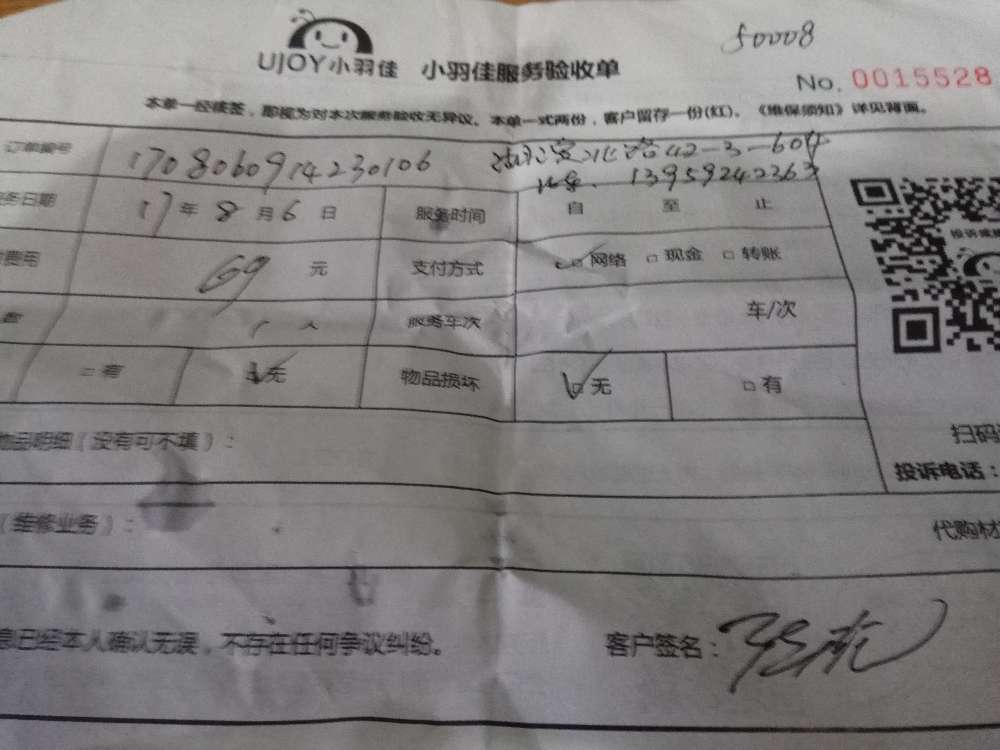 50008
UJOY小羽佳 小羽佳服务验收单
No. 0015528
本单一经核签，即视为对本次服务验收无异议。本单一式两份，客户留存一份(红)。《维保须知》详见背面。
订单编号 1708060914230106 湖滨北路42-3-604
13959242363
务日期 17年8月6日 服务时间 自 至 止
费用 69 元 支付方式 □网络 □现金 □转账
数 1 人 服务车次 车/次
□有 □无 物品损坏 □无 □有
投诉或
物品明细（没有可不填）：
扫码
投诉电话：
（维修业务）： 代购材
息已经本人确认无误，不存在任何争议纠纷。 客户签名：